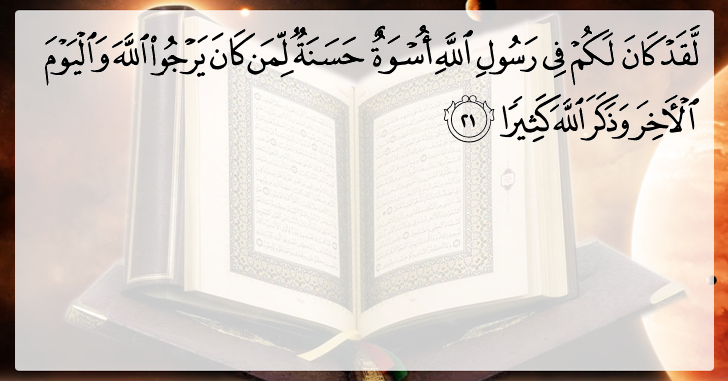 لَّقَدْ كَانَ لَكُمْ فِى رَسُولِ ٱللَّهِ أُسْوَةٌ حَسَنَةٌ لِّمَن كَانَ يَرْجُوا۟ ٱللَّهَ وَٱلْيَوْمَ
ٱلْأَخِرَ وَذَكَرَ ٱللَّهَ كَثِيرًا ٢١